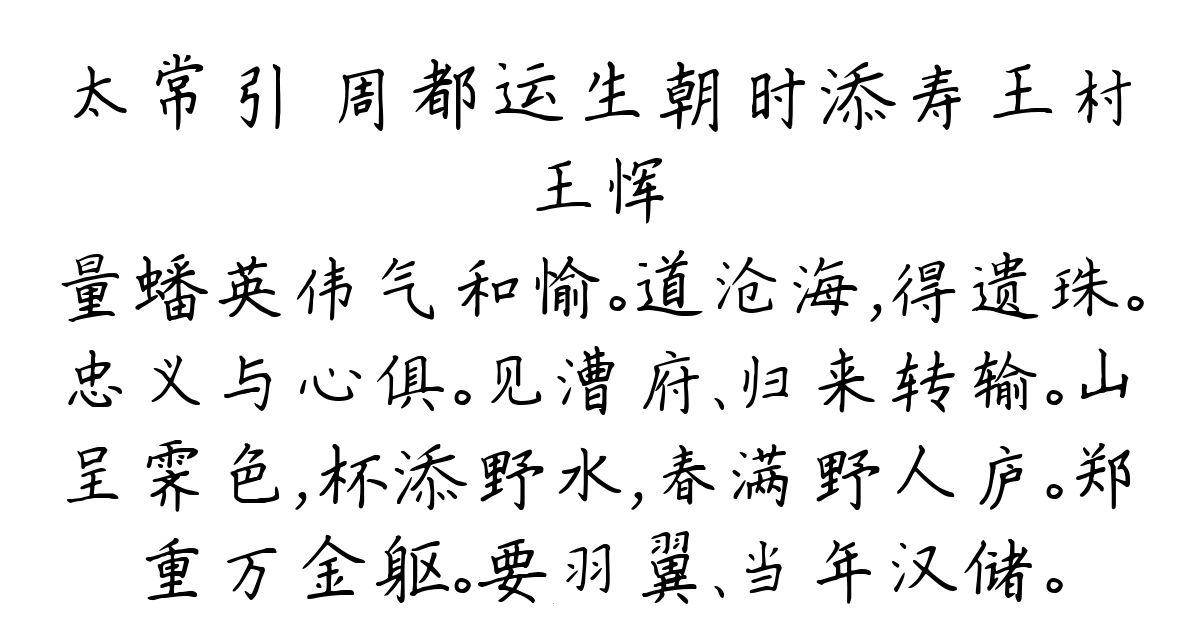 太常引 周都运生朝时添寿王村
王恽
量蟠英伟气和愉。道沧海,得遗珠。
忠义与心俱。见漕府、归来转输。山
呈霁色,杯添野水,春满野人庐。郑
重万金躯。要羽翼、当年汉储。